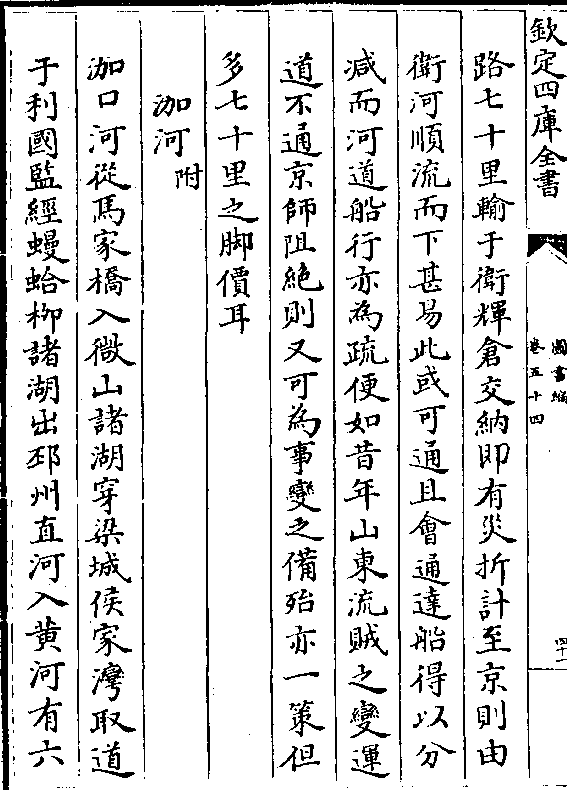 欽定四庫全書
圖書編
卷五十四
四十一
路七十里輸于衛輝倉交納即有災折計至京則由
衛河順流而下甚易此或可通且會通達船得以分
減而河道船行亦為疏便如昔年山東流賊之變運
道不通京師阻絶則又可為事變之備殆亦一策但
多七十里之脚價耳
泇河附
泇口河從馬家橋入微山諸湖穿梁城侯家灣取道
于利國監經蟃蛤柳諸湖出邳州直河入黄河有六